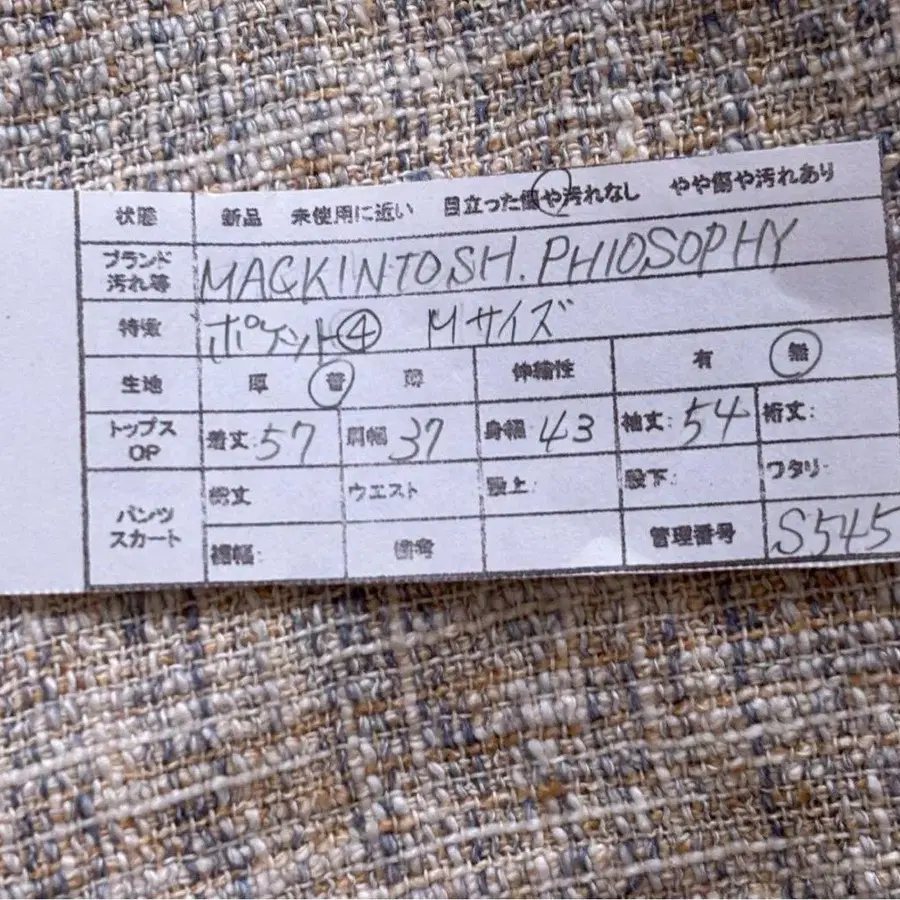 状態 新品 未使用に近い 目立った傷や汚れなし やや傷や汚れあり
ブランド 汚れ等 MACKINTOSH. PHIOSOPHY
特徴 ポケット④ Mサイズ
生地 厚 普 薄 伸縮性 有 無
トップス OP 着丈: 57 肩幅 37 身幅: 43 袖丈: 54 裄丈:
パンツ スカート 総丈 ウエスト 股上: 股下: ワタリ:
裾幅: 備考 管理番号 S545